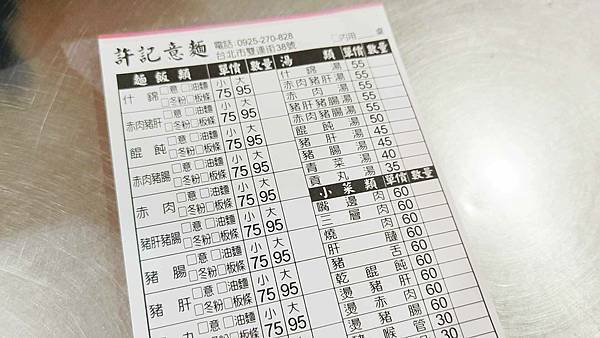 許記意麵
電話:0925-270-828
台北市雙連街38號
□內用___桌
麵 飯 類 單價 數量
什錦 □意 □油麵 □冬粉 □板條 小75 大95
赤肉豬肝 □意 □油麵 □冬粉 □板條 小75 大95
餛飩 □意 □油麵 □冬粉 □板條 小75 大95
赤肉豬腸 □意 □油麵 □冬粉 □板條 小75 大95
赤肉 □意 □油麵 □冬粉 □板條 小75 大95
豬肝豬腸 □意 □油麵 □冬粉 □板條 小75 大95
豬腸 □意 □油麵 □冬粉 □板條 小75 大95
豬肝 □意 □油麵 □冬粉 □板條 小75 大95
丸 □意 □油麵 小 大
湯 類 單價 數量
什錦湯 55
赤肉豬肝湯 55
赤肉湯 55
豬肝豬腸湯 55
赤肉豬腸湯 55
餛飩湯 50
豬肝湯 45
豬腸湯 45
青菜湯 40
貢丸湯 35
小菜類 單價 數量
嘴邊肉 60
三層肉 60
燒肉 60
肝膶 60
豬舌 60
乾餛飩 60
燙豬肝 60
燙赤肉 60
燙豬腸 60
豬喉管 30
30